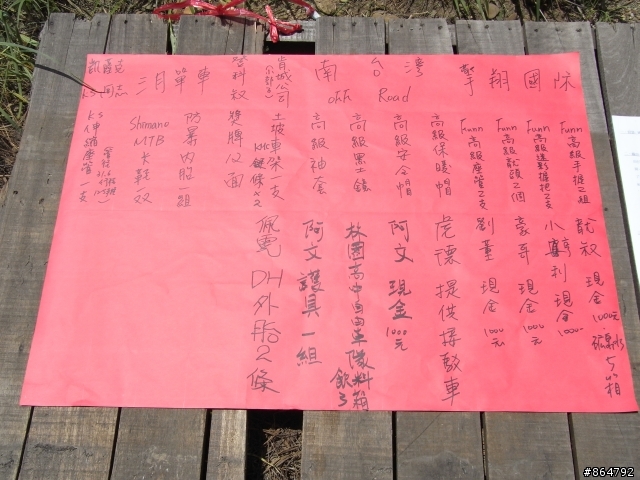 擎翔國際
Funn 高級手把之組
Funn 高級運動握把之支
Funn 高級龍頭之個
Funn 高級座管之支
南台灣 off Road
高級保暖帽
高級安全帽
高級黑土鏡
高級袖套
肯城公司
土坡車架一支
KMC 鏈條x2
營科叔
獎牌12面
三月單車
防暴內胎一組
Shimano MTB 卡鞋一双
KS 伸縮座管一支
龍叔 現金1000元
小 利 現金1000
豪哥 現金1000元
劉董 現金1000元
虎德 提供接駁車
阿文 現金1000元
林園高中自由車隊
阿文 護具一組
佩霓 DH外胎2條
#864792